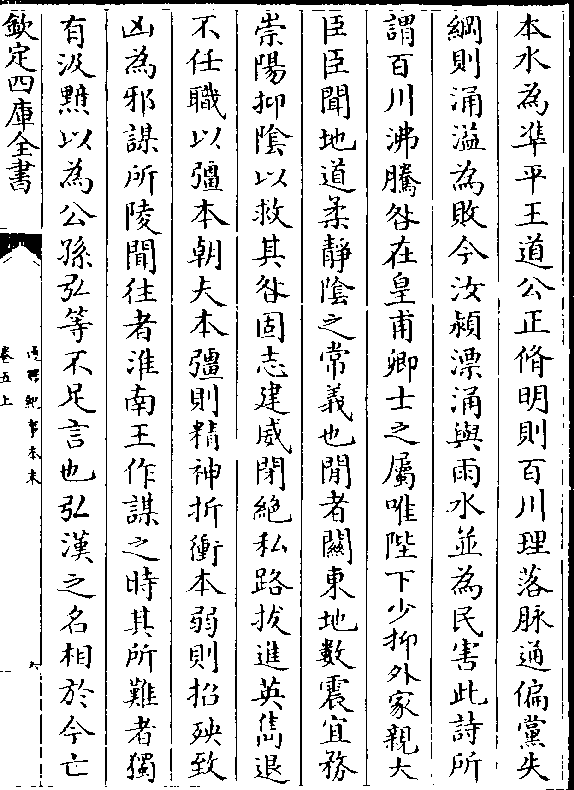 本水為準平王道公正脩明則百川理落脉通偏黨失
綱則涌溢為敗今汝潁漂涌與雨水並為民害此詩所
謂百川沸騰咎在皇甫卿士之屬唯陛下少抑外家親大
臣臣聞地道柔靜陰之常義也間者關東地數震宜務
崇陽抑陰以救其咎固志建威閉絶私路拔進英雋退
不任職以彊本朝夫本彊則精神折衝本弱則招殃致
凶為邪謀所陵聞往者淮南王作謀之時其所難者獨
有汲黯以為公孫弘等不足言也弘漢之名相於今亡
欽定四庫全書
通鑑紀事本末
卷五上